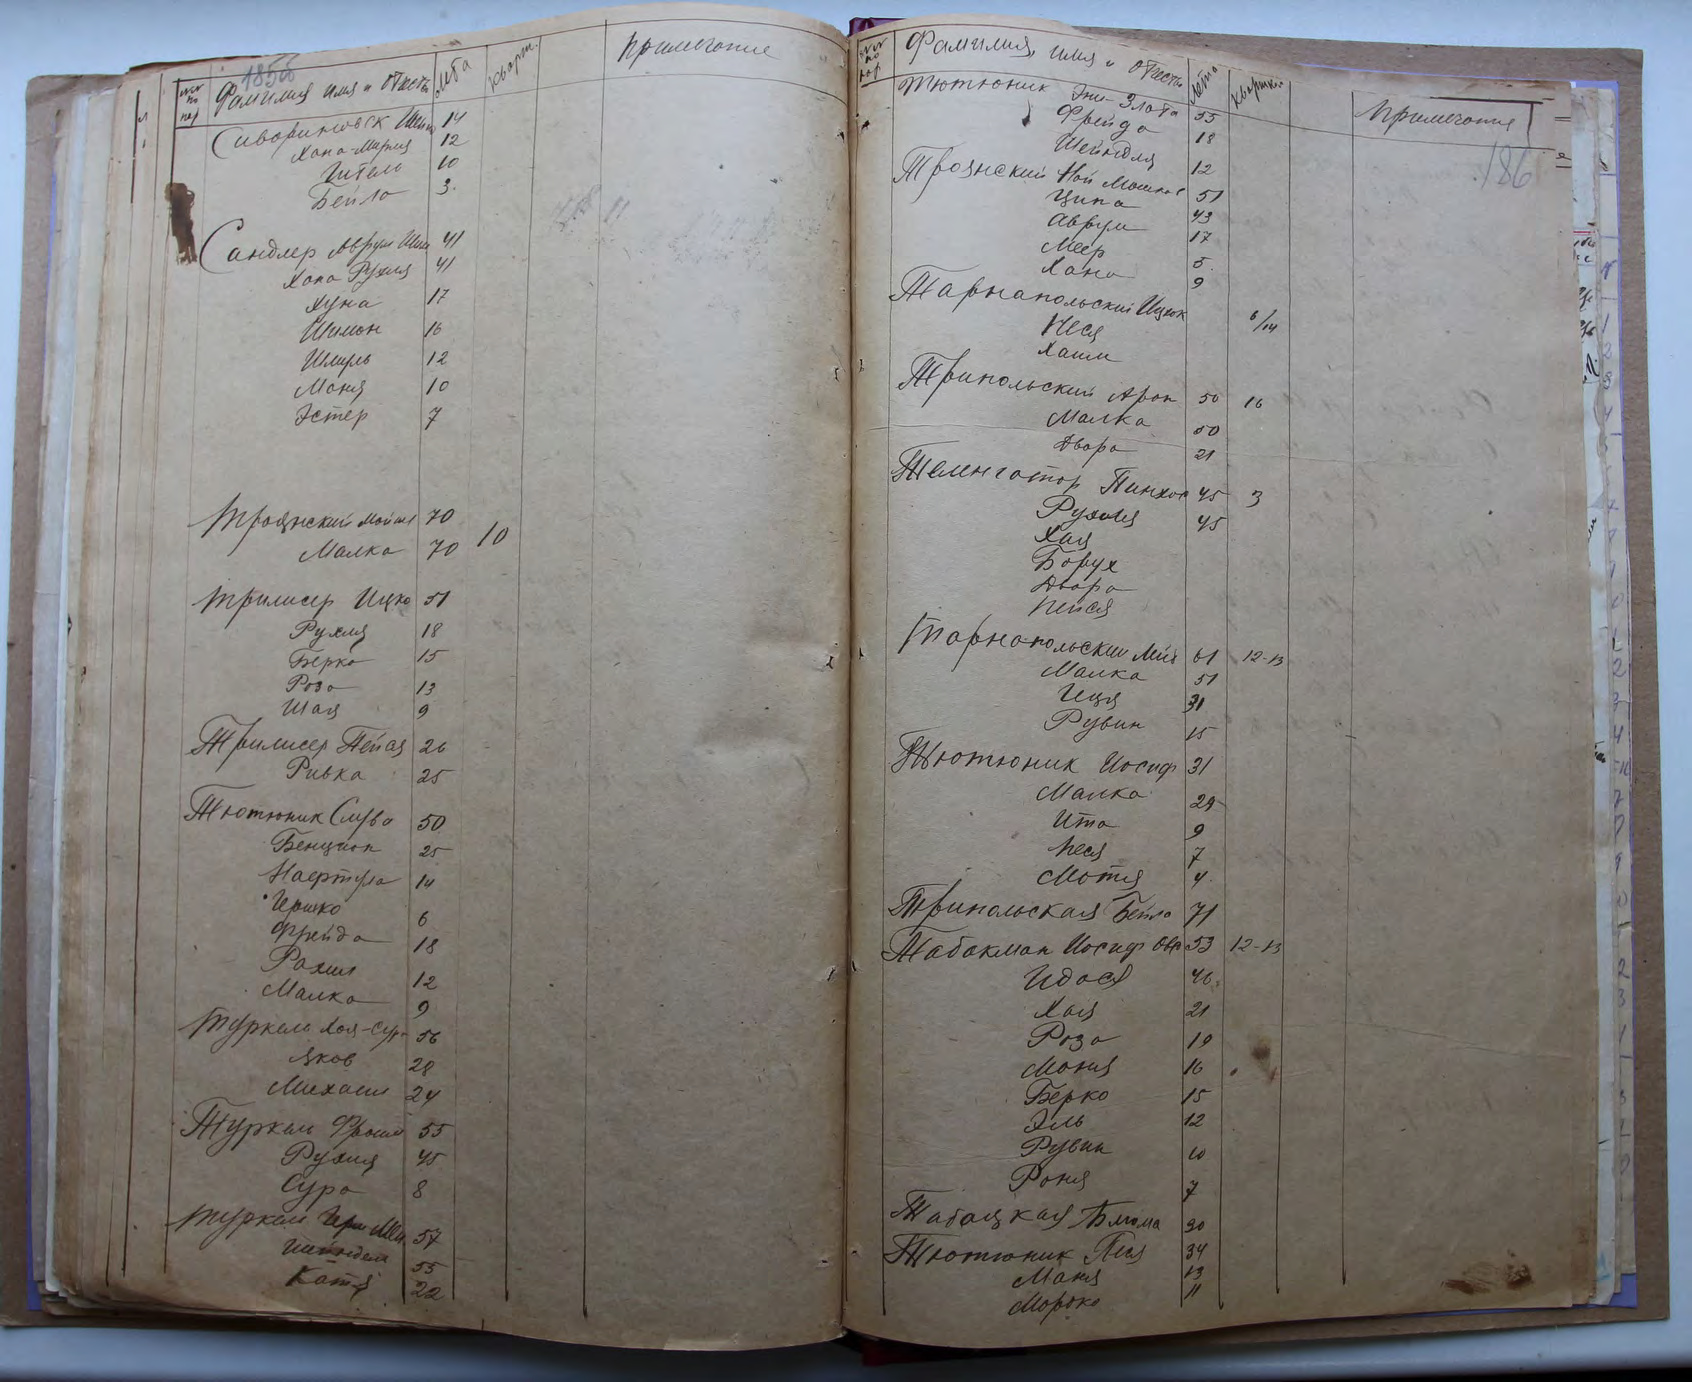 185об
№№ по пор Фамилия имя и отеств Лета Кварт. Примечание
Сивориновск 14
Хана-Мирля 12
Гитель 10
Бейла 3
Сандлер Аврум Шим 41
Хана Рухля 41
Хуна 17
Шимон 16
Шмуль 12
Маня 10
Эстер 7
Троянский Мойше 70
Малка 70 10
Трилисер Ицко 51
Рухля 18
Берко 15
Роза 13
Шая 9
Трилисер Пейся 26
Ривка 25
Тютюник Слува 50
Бенцион 25
Нафтула 14
Гершко 6
Фрейда 18
Рахил 12
Малка 9
Туркел Хая-Сура 56
Яков 28
Михаил 24
Туркел Фроим 55
Рухля 45
Сура 8
Туркел Герш 57
Шейндел 55
Катя 22
№№ по пор Фамилия, имя и отеств Лета Квартал Примечание
186
Тютюник Эни-Злота 35
Фрейда 18
Шейндля 12
Троянский Ной Мошков 51
Ципа 43
Аврум 17
Меер 5
Хана 9
Тарнапольский Ицхок 6/14
Неся
Хаим
Трипольский Арон 50 16
Малка 50
Двора 21
Теленгатор Пинхос 45 3
Рухля 45
Хая
Борух
Двора
Пейся
Тарнапольский Мей 61 12-13
Малка 51
Иця 31
Рувин 15
Тютюник Иосиф 31
Малка 29
Ита 9
Неся 7
Мотя 4
Трипольская Бейла 71
Табакман Иосиф Овс 53 12-13
Идася 46
Хая 21
Роза 19
Маня 16
Берко 15
Эль 12
Рувин 10
Раня 7
Табацкая Блюма 30
Тютюник Песя 34
Маня 13
Мордко 11